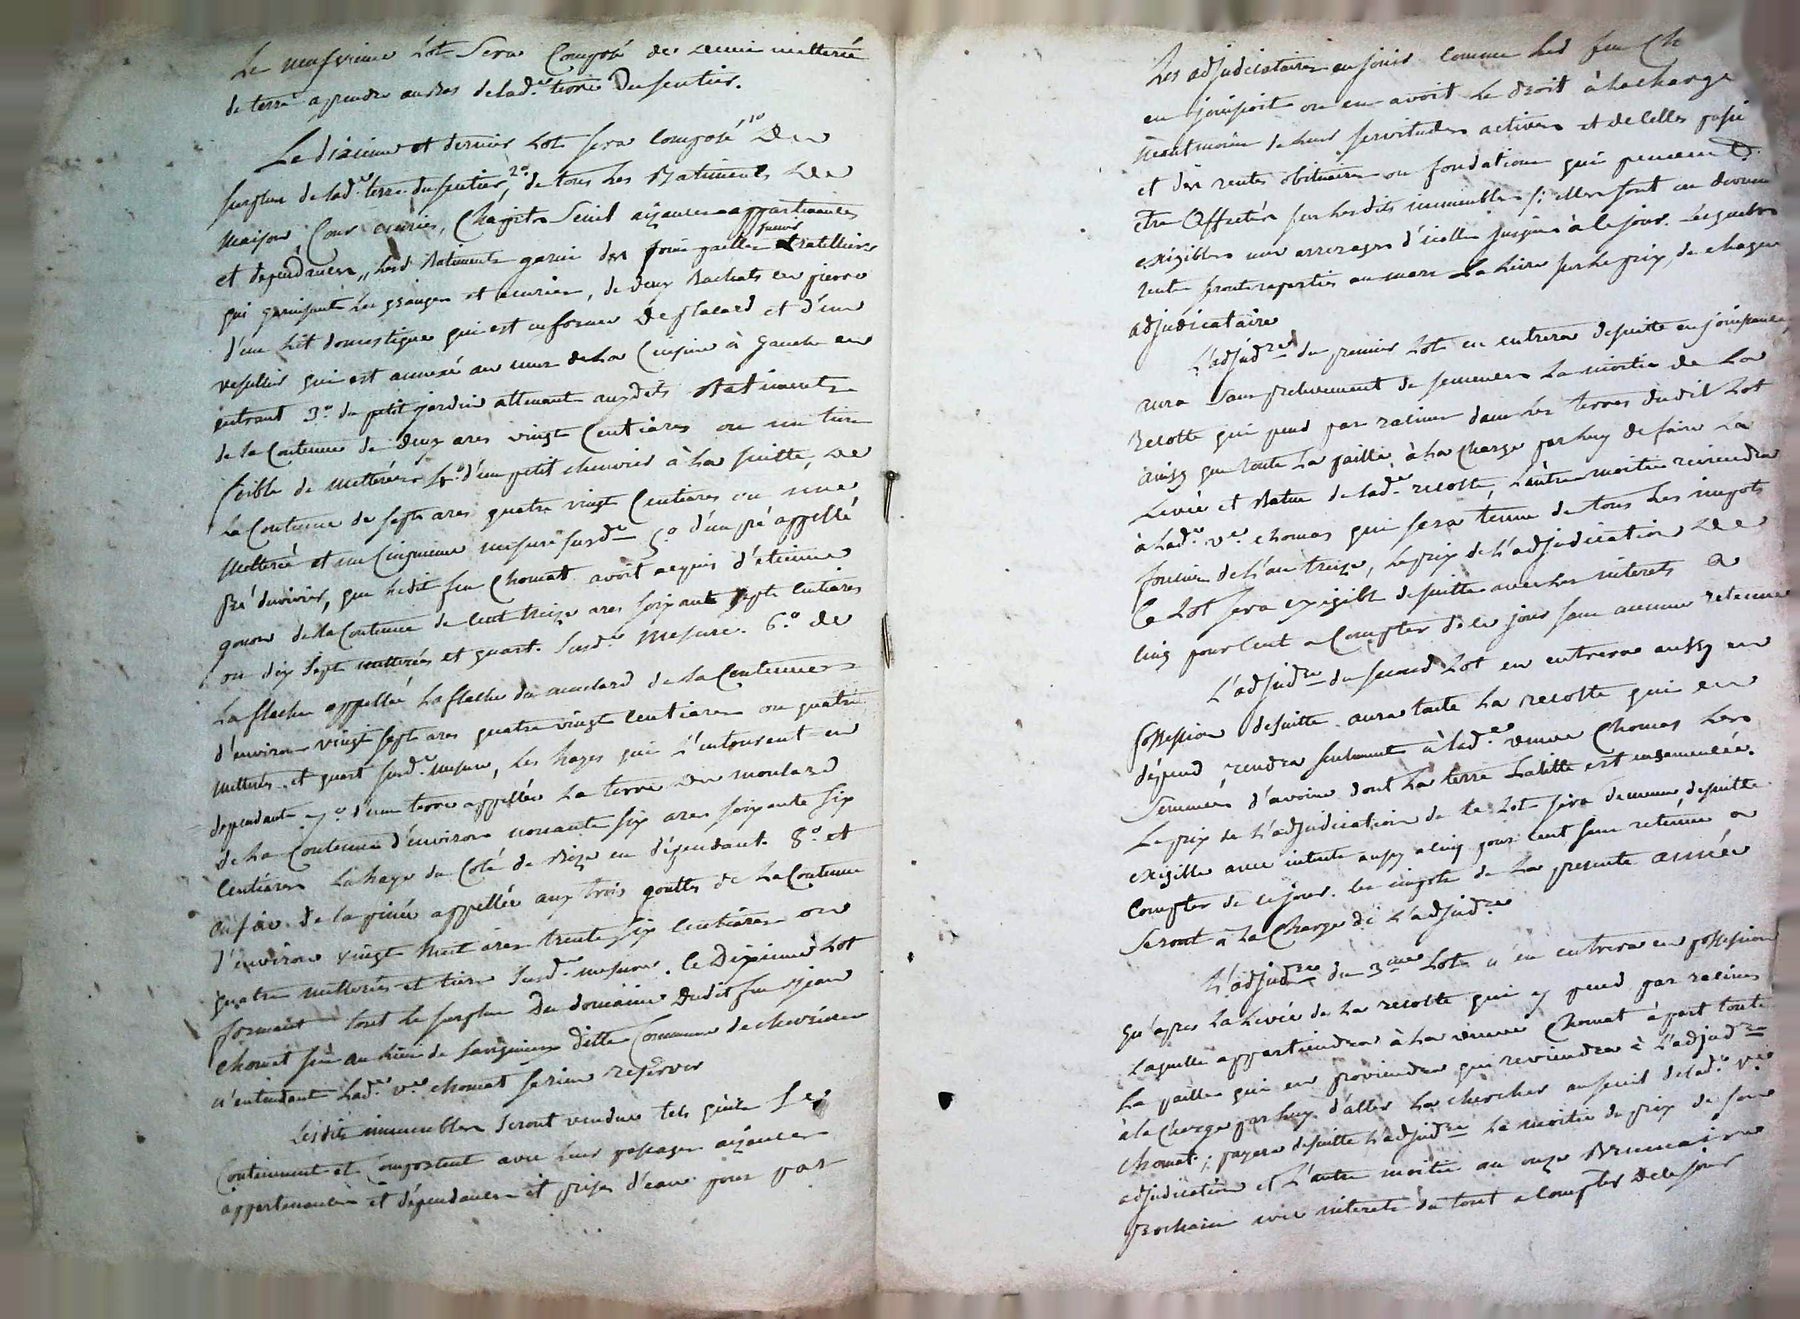 Le neufvieme Lot Sera Composé de demi metterée
de terre a prendre au bas de lad.e terre Du sentier.
Le dixieme et dernier Lot sera composé 1o Du
surplus de lad.e terre du sentier, 2o de tous Les Batiments de
maison, Cour ecuries, Chapits Seuil aizances appartenances
et dependances, Lesd. Batiments garni des foins paille fumier et ratelliers
qui garnissent Les granges et ecuries, de deux Bachats en pierre
d'un Lit domestique qui est en forme de placard et d'un
vesselier qui est annexé au mur de La Cuisine à gauche en
entrant 3o du petit jardin attenant auxdits Batiments
de la Contenue de deux ares vingt Centiares ou un tiers
de metterée 4o d'un petit chenevier à La suitte, de
La Contenue de sept ares quatre vingt Centiares ou une
metterée et un Cinquieme mesure susd.e 5o d'un pré appellé
Pré duvivier, que Ledit feu Chomat avoit acquis d'etienne
gonon de La Contenue de Cent treize ares soixante sept Centiares
ou dix sept metterées et quart. Susd.e Mesure. 6o de
La flache appellée La flache du moulard de La Contenue
d'environ vingt sept ares quatre vingt Centiares ou quatre
metterées et quart susd.e mesure, Les hayes qui L'entourent en
dependant 7o d'une terre appellée La terre du moulard
de La Contenue d'environ nonante six ares soixante six
Centiares La haye du Coté de Bize en dépendant. 8o et
enfin de la pinée appellée aux trois gouttes de La Contenue
d'environ vingt huit ares trente six Centiares ou
quatre metterées et tiers Susd.e mesure. Ce Dixieme Lot
formant tout le surplus Du domaine Dudit feu Jean
Chomat sis au Lieu de Savignieux Ditte Commune de chevrieres
n'entendant Lad.e v.e chomat se rien reserver
Lesdits immeubles seront vendus tels qu'ils se
Contiennent et Comportent avec Leurs passages aizances
appartenances et dépendances et prises d'eau pour par
Les adjudicataires en jouir comme Led feu Ch
en jouissoit ou en avoit Le droit à La charge
neantmoins de Leurs servitudes actives et de celles passi
et des rentes obituaires ou fondations qui peuvent
etre affectés sur Lesdits immeubles si elles sont ou deviennent
exigibles aux arrerages d'icelles jusques à ce jour. Lesquelles
rentes seront reparties au marc La Livre sur Le prix, de chaque
adjudicataire
L'adjud.re du premier Lot en entrera desuitte en jouissance,
aura sans prelevement de semences La moitié de La
Recolte qui pend par racines dans Les terres dudit Lot
ainsy que toute La paille, à La Charge par Luy de faire La
Levée et Batue de lad.e recolte, L'autre moitié reviendra
à Lad.e v.e chomat qui sera tenue de tous Les impots
fonciers de L'an treize, Le prix de L'adjudication de
Ce Lot sera exigible desuitte avec Les interets a
Cinq pour Cent a Compter de ce jour sans aucune retenue
L'adjud.re du second Lot en entrera aussy en
possession desuitte. aura toute La recolte qui en
dépend, rendra seulement à lad.e veuve Chomat Les
Semences d'avoine dont La terre Laditte est ensemencée.
Le prix de L'adjudication de Ce Lot sera de meme desuitte
exigible avec interets aussy a cinq pour cent sans retenue a
Compter de ce jour. Les impots de La presente année
Seront à La Charge de L'adjud.re
L'adjud.re du 3me Lot n'en entrera en possession
Qu'apres La Levée de La recolte qui y pend par racines
Laquelle appartiendra à La veuve Chomat à part toute
La paille qui en proviendra qui reviendra à L'adjud.re
à la charge par Luy d'aller La chercher au seuil de Lad.e v.e
Chomat; payera desuitte L'adjud.re La moitié du prix de son
adjudication et L'autre moitié au onze Brumaire
Prochain avec interets du tout a Compter De ce Jour